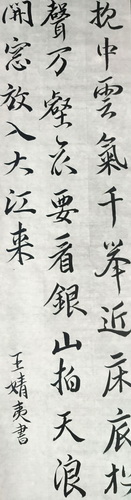 枕中雲氣千峯近床底松
聲万壑哀要看銀山拍天浪
開窓放入大江来
王婧夷書